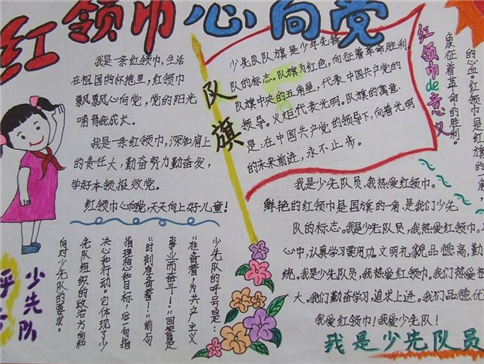 红领巾心向党
我是一条红领巾,生活
在祖国的怀抱里,红领巾
飘飘心向党,党的阳光
哺育我成长。
我是一条红领巾,深知肩上
的责任大,勤奋努力勤奋发,
学好本领报效党。
红领巾心向党,天天向上好儿童!
队旗
少先队队旗是少年先锋
队的标志。队旗为红色,向征着革命胜利
队旗中央的五角星,代表中国共产党的
领导。火炬代表光明。队旗的寓意
是:在中国共产党的领导下,向着光明
的未来前进,永不止步。
红领巾de意义
的心血。红领巾是红旗的
象征着革命的胜利。
我是少先队员,我热爱红领巾。
鲜艳的红领巾是国旗的一角,是我们少先
队的标志。我是少先队员,我热爱红领巾。
心中,认真学习要用功,文明礼貌品德高,勤
统。我是少先队员,我热爱红领巾。我们热爱
大。我们勤奋学习,追求上进。我们品德优
我爱红领巾!我爱少先队!
我是少先队员
少先队
呼
少先队的呼号是:
“准备着,为共产主义
事业而奋斗!”回答是
“时刻准备着!”前句
指理想和目标,后一句指
决心和行动。它体现了少
先队组织的政治方向和
向对少先队的要求。